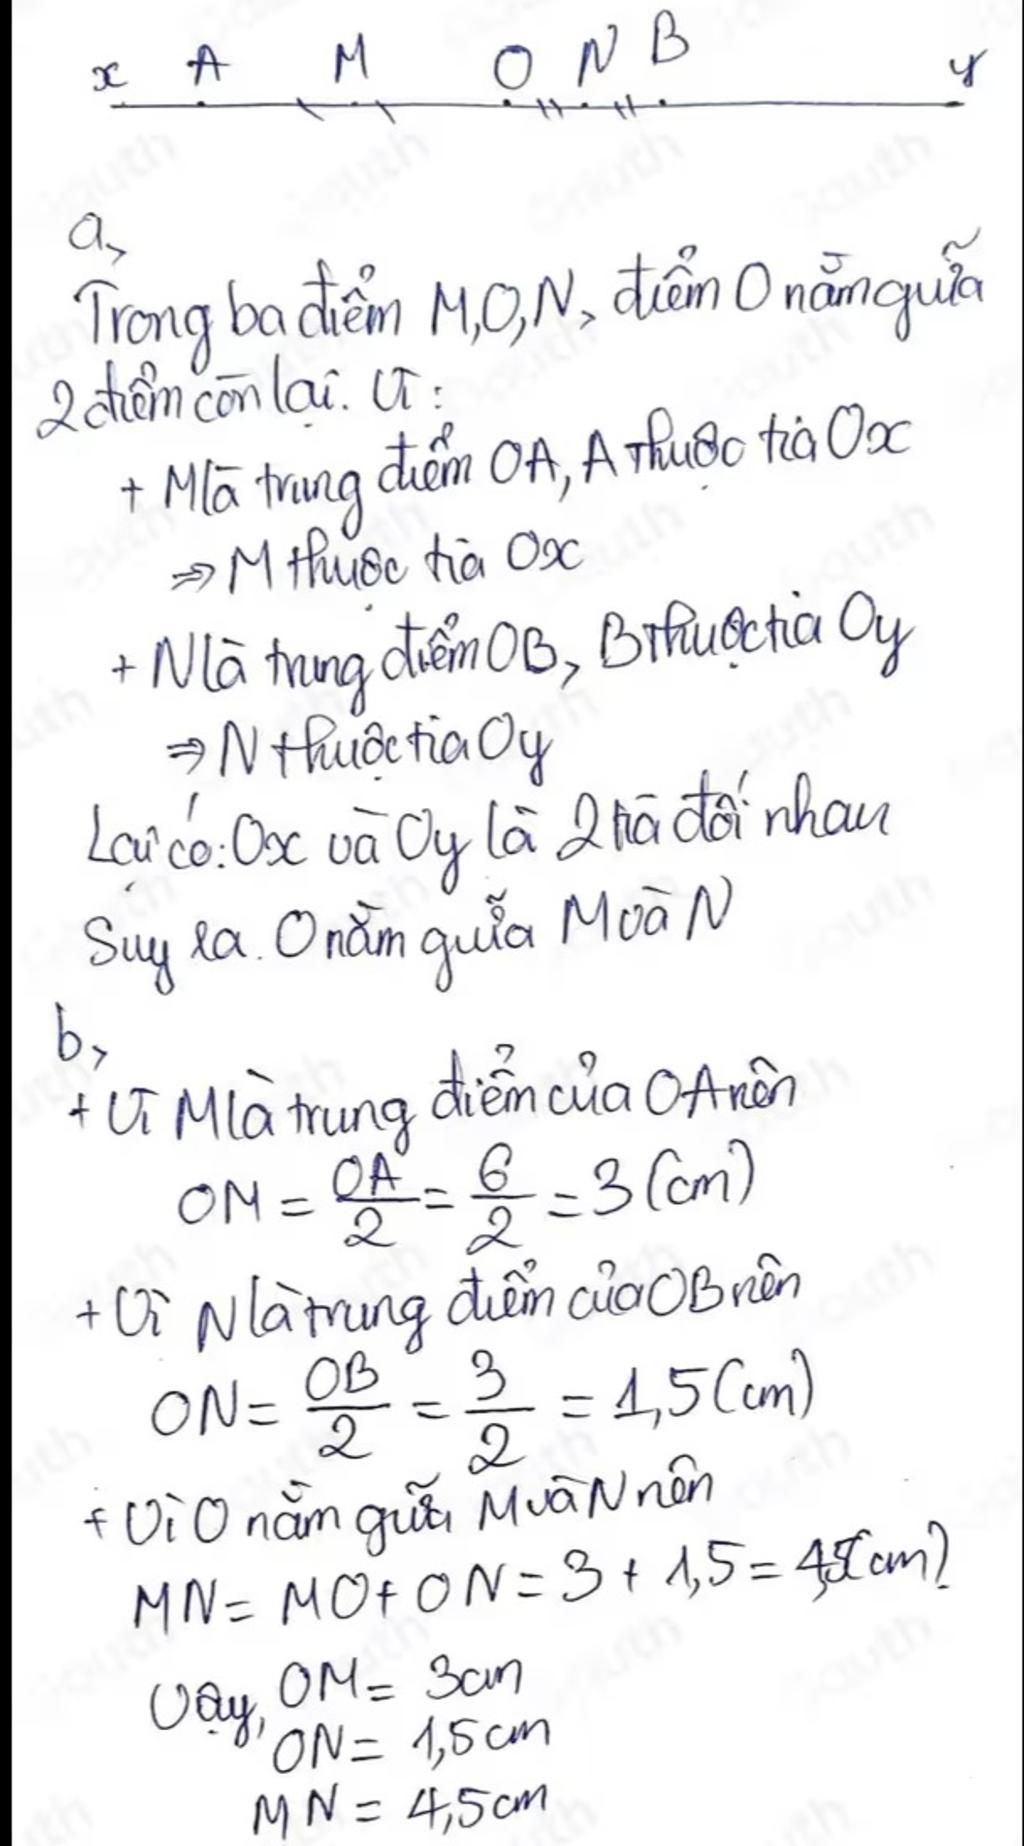 x A M O N B y
a,
Trong ba điểm M,O,N, điểm O nằm giữa
2 điểm còn lại. Vì:
+ M là trung điểm OA, A thuộc tia Ox
=> M thuộc tia Ox
+ N là trung điểm OB, B thuộc tia Oy
=> N thuộc tia Oy
Lại có: Ox và Oy là 2 tia đối nhau
Suy ra. O nằm giữa M và N
b,
+ Vì M là trung điểm của OA nên
OM = OA/2 = 6/2 = 3 (cm)
+ Vì N là trung điểm của OB nên
ON = OB/2 = 3/2 = 1,5 (cm)
+ Vì O nằm giữa M và N nên
MN = MO + ON = 3 + 1,5 = 4,5 (cm)
Vậy, OM = 3cm
ON = 1,5cm
MN = 4,5cm